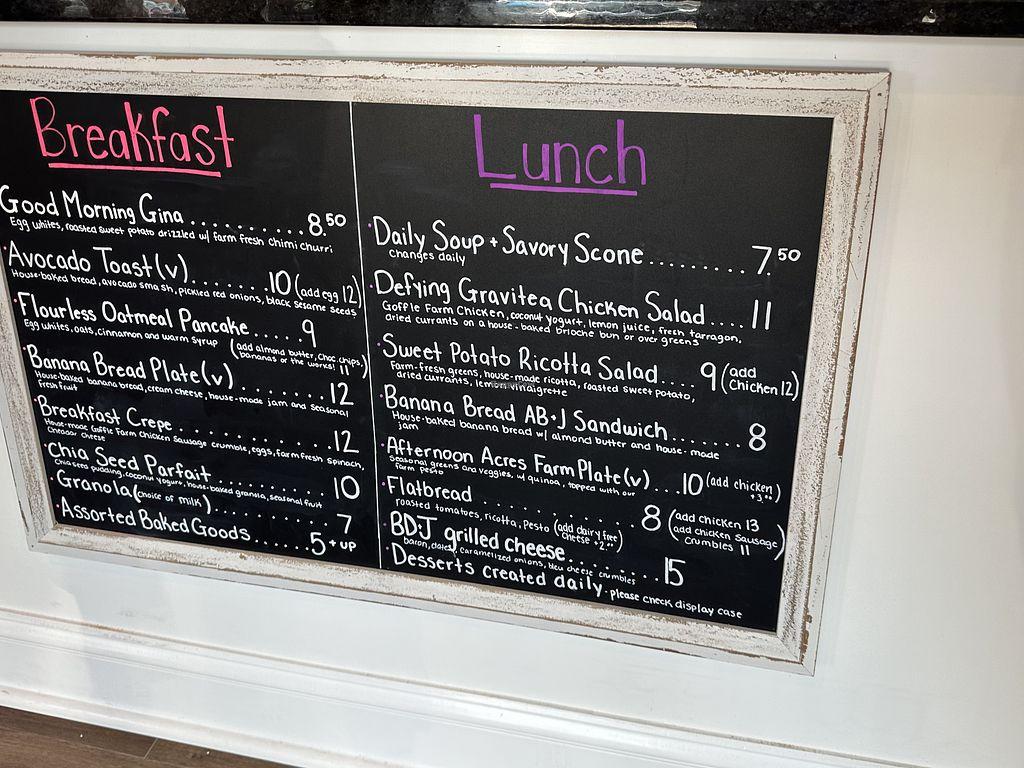 Breakfast
Good Morning Gina ......... 8.50
Egg whites, roasted sweet potato drizzled w/ farm fresh chimi churri
Avocado Toast (v) ....... 10 (add egg 12)
House-baked bread, avocado smash, pickled red onions, black sesame seeds
Flourless Oatmeal Pancake .... 9
Egg whites, oats, cinnamon and warm syrup (add almond butter, choc chips,
bananas or the works! 11)
Banana Bread Plate (v) ....... 12
House-baked banana bread, cream cheese, house-made jam and seasonal
fresh fruit
Breakfast Crepe ............ 12
House-made Goffle Farm Chicken Sausage crumble, eggs, farm fresh spinach,
Cheddar cheese
Chia Seed Parfait .......... 10
Chia seed pudding, coconut yogurt, house-baked granola, seasonal fruit
Granola (choice of milk) .......... 7
Assorted Baked Goods ...... 5 + up
Lunch
Daily Soup + Savory Scone ......... 7.50
Changes daily
Defying Gravitea Chicken Salad .... 11
Goffle Farm Chicken, coconut yogurt, lemon juice, fresh tarragon,
dried currants on a house-baked brioche bun or over greens
Sweet Potato Ricotta Salad .... 9 (add
chicken 12)
Farm-fresh greens, house-made ricotta, roasted sweet potato,
dried currants, lemon vinaigrette
Banana Bread AB+J Sandwich ....... 8
House-baked banana bread w/ almond butter and house-made
jam
Afternoon Acres Farm Plate (v) ... 10 (add chicken)
Seasonal greens and veggies, w/ quinoa, topped with our
farm pesto
Flatbread ............ 8 (add chicken 13
add chicken sausage
crumbles 11)
roasted tomatoes, ricotta, pesto (add dairy free
cheese +2.00)
BDJ grilled cheese .......... 15
bacon, dates, caramelized onions, bleu cheese crumbles
Desserts created daily - please check display case